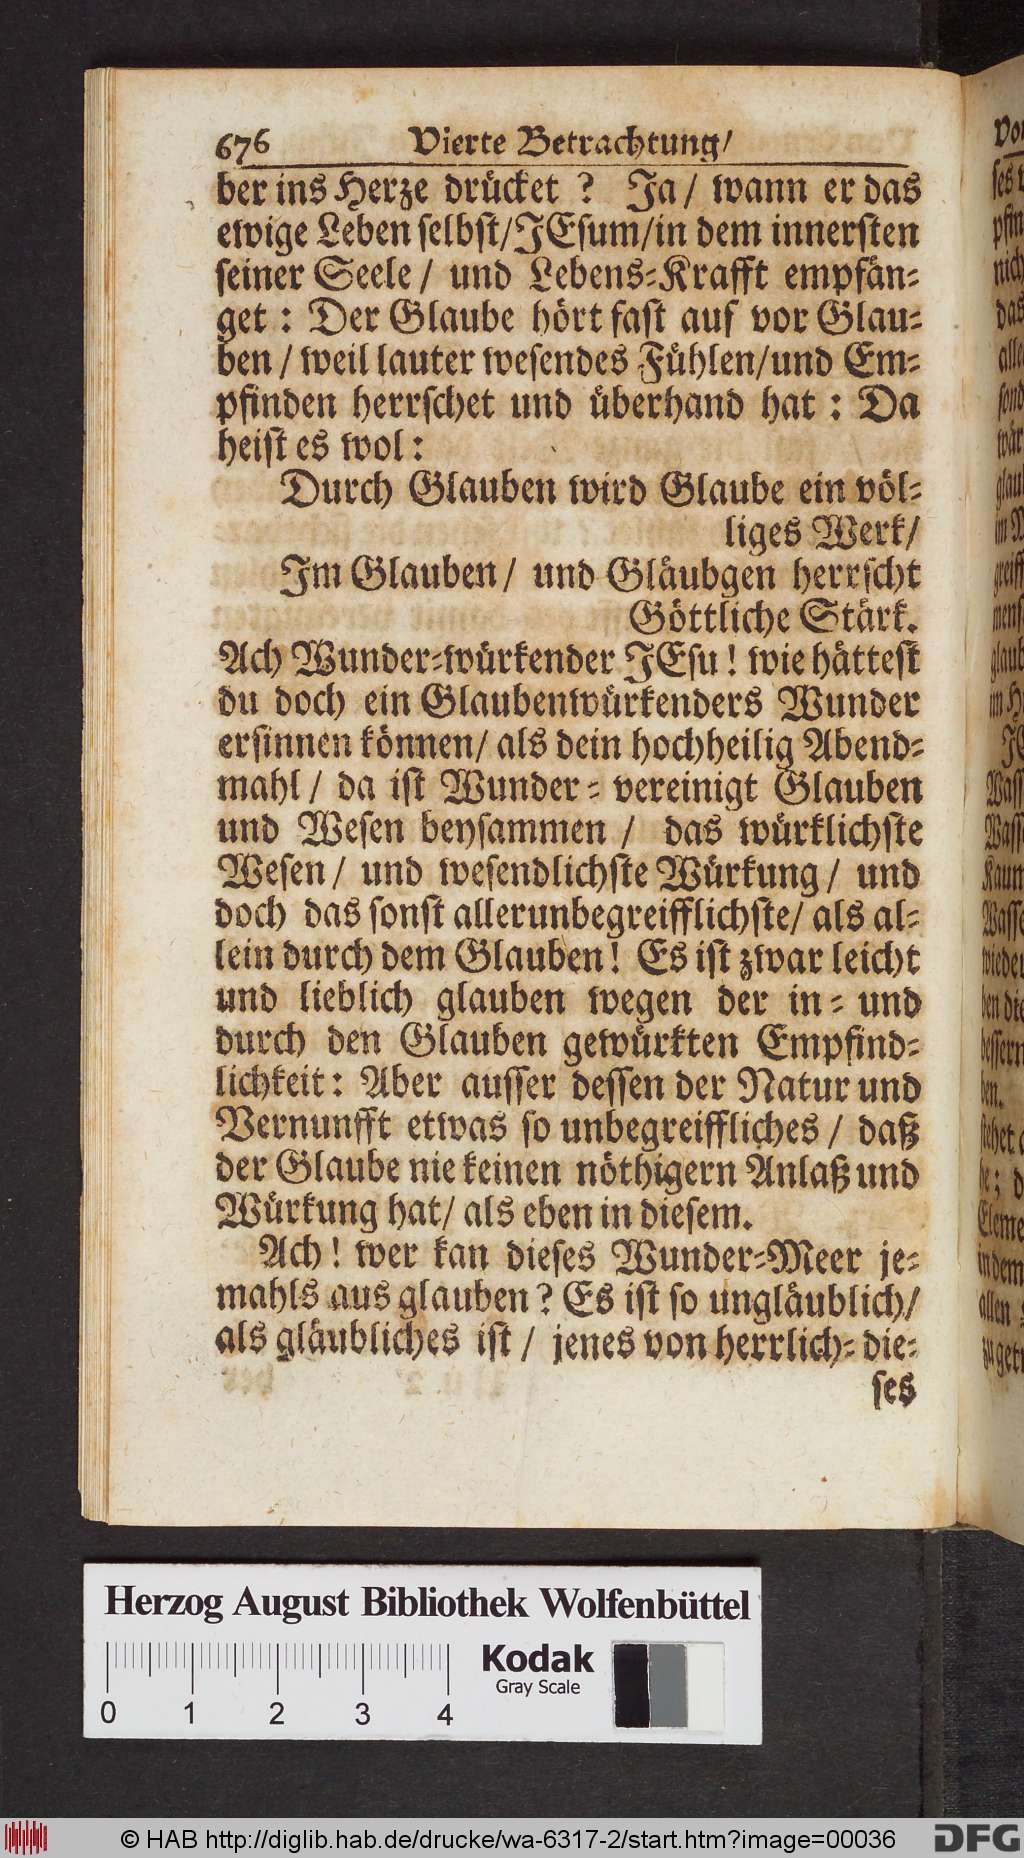 676 Vierte Betrachtung/
ber ins Herze drücket ? Ja/ wann er das
ewige Leben selbst/JEsum/in dem innersten
seiner Seele / und Lebens-Krafft empfän-
get : Der Glaube hört fast auf vor Glau-
ben / weil lauter wesendes Fühlen/und Em-
pfinden herrschet und überhand hat : Da
heist es wol:
Durch Glauben wird Glaube ein völ-
liges Werk/
Im Glauben / und Gläubgen herrscht
Göttliche Stärk.
Ach Wunder-würkender JEsu! wie hättest
du doch ein Glaubenwürkenders Wunder
ersinnen können/ als dein hochheilig Abend-
mahl / da ist Wunder - vereinigt Glauben
und Wesen beysammen / das würklichste
Wesen / und wesendlichste Würkung / und
doch das sonst allerunbegreifflichste/ als al-
lein durch dem Glauben! Es ist zwar leicht
und lieblich glauben wegen der in - und
durch den Glauben gewürkten Empfind-
lichkeit: Aber ausser dessen der Natur und
Vernunfft etwas so unbegreiffliches / daß
der Glaube nie keinen nöthigern Anlaß und
Würkung hat/ als eben in diesem.
Ach! wer kan dieses Wunder-Meer je-
mahls aus glauben? Es ist so ungläublich/
als gläubliches ist / jenes von herrlich- die-
ses
Herzog August Bibliothek Wolfenbüttel
Kodak
Gray Scale
0 1 2 3 4
© HAB http://diglib.hab.de/drucke/wa-6317-2/start.htm?image=00036
DFG